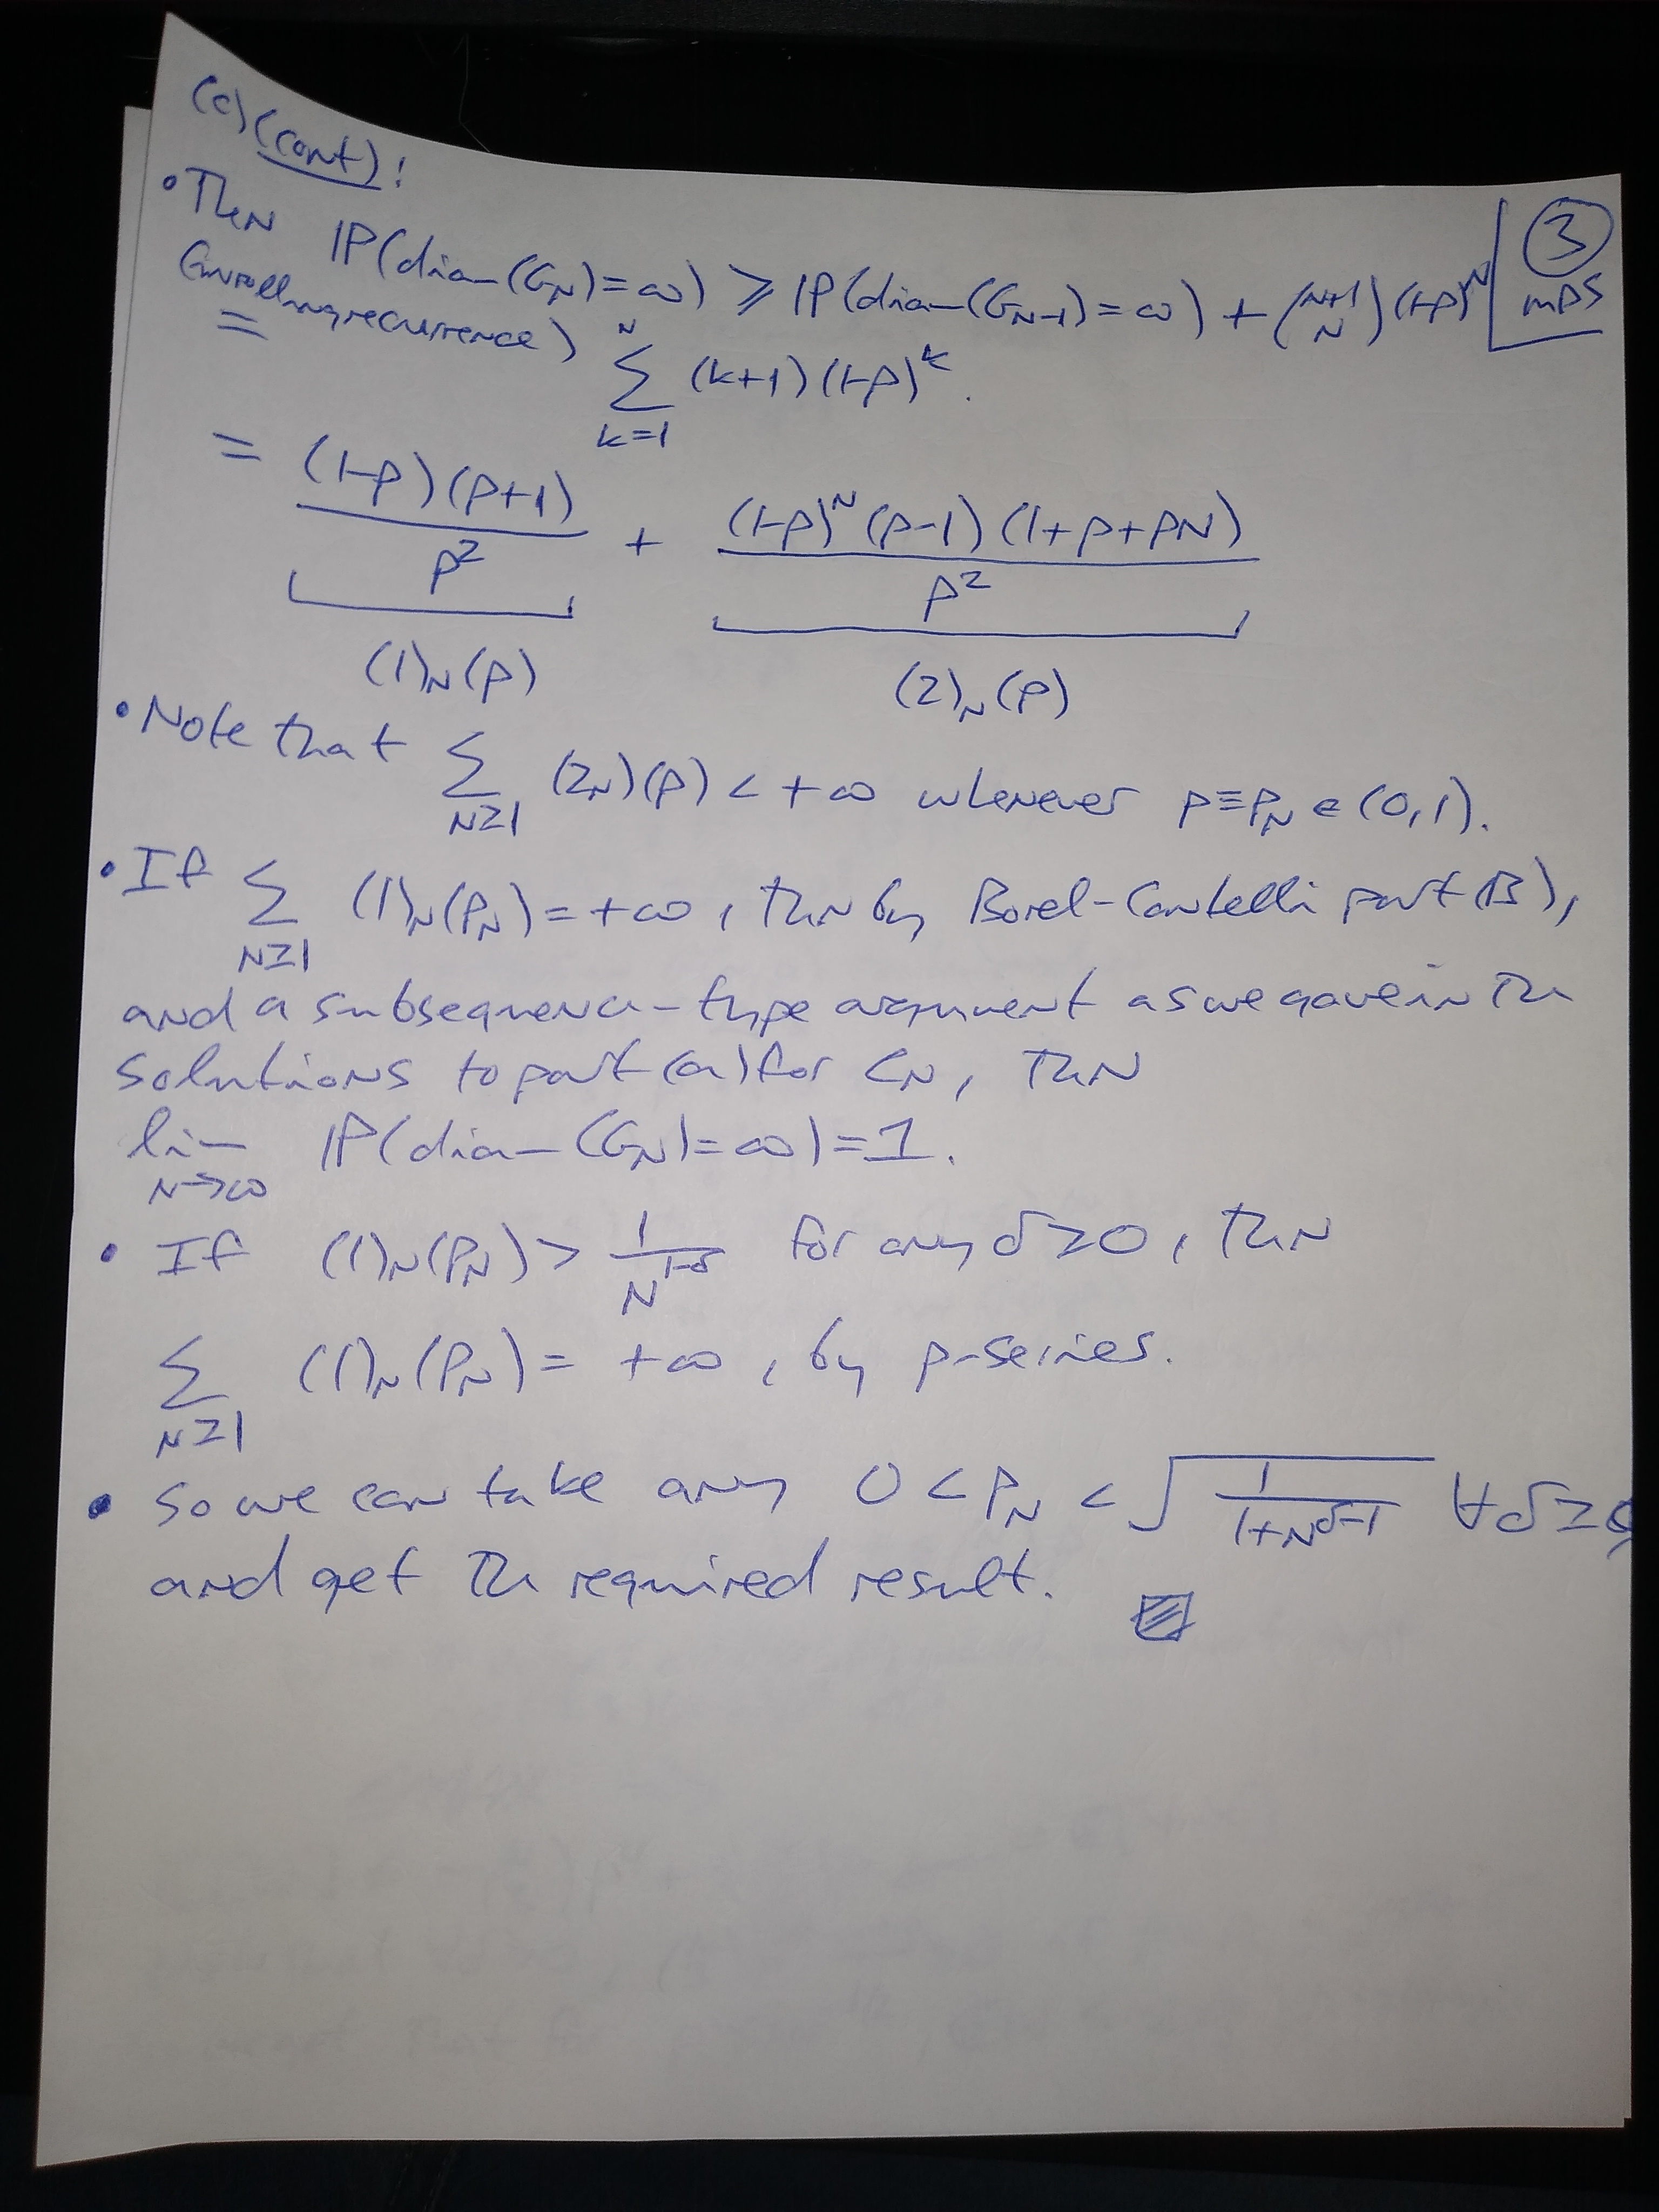 (c) (cont):
③
mDS
• Then IP(diam(G_N)=∞) ≥ IP(diam(G_{N-1})=∞) + (N+1 N)(1-p)^N
(unrolling recurrence)
= ∑_{k=1}^{N} (k+1)(1-p)^k.
= (1-p)(p+1)/p² + (1-p)^N (p-1)(1+p+pN)/p²
(1)_N(p) (2)_N(p)
• Note that ∑_{N≥1} (2_N)(p) < +∞ whenever p≡p_N ∈ (0,1).
• If ∑_{N≥1} (1)_N(p_N) = +∞, then by Borel-Cantelli part (B),
and a subsequence-type argument as we gave in the
solutions to part (a) for C_N, then
lim_{N→∞} IP(diam(G_N)=∞)=1.
• If (1)_N(p_N) > 1/N^{1-δ} for any δ≥0, then
∑_{N≥1} (1)_N(p_N) = +∞, by p-series.
• So we can take any 0 < p_N < √(1/(1+N^{δ-1})) ∀δ≥0,
and get the required result. ▨